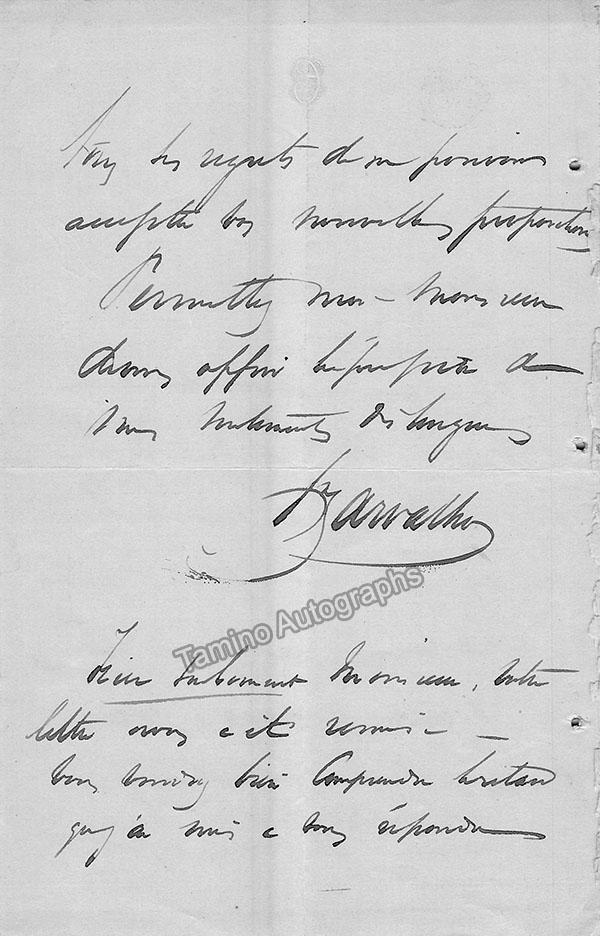 tous les regrets de ne pouvoir
accepter vos nouvelles propositions
Permettez moi - Monsieur
de vous offrir l'expression de
mes sentiments distingués
Carvalho
Tamino Autographs
Hier seulement Monsieur, votre
lettre nous a été remise -
vous voudrez bien comprendre le retard
que j'ai mis a vous répondre